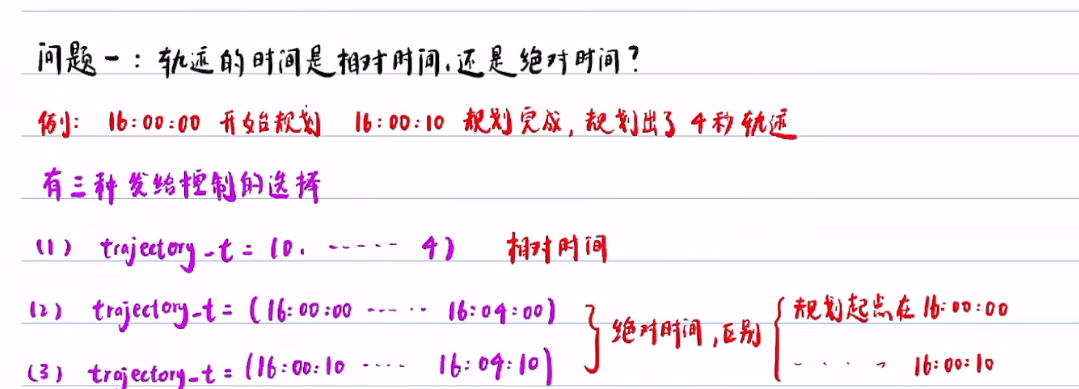 问题一：轨迹的时间是相对时间，还是绝对时间？
例：16:00:00 开始规划 16:00:10 规划完成，规划出了4秒轨迹
有三种发给控制的选择
(1) trajectory_t = (0. ····· 4) 相对时间
(2) trajectory_t = (16:00:00 ····· 16:04:00)
(3) trajectory_t = (16:00:10 ···· 16:04:10)
绝对时间，区别
规划起点在16:00:00
· · · · 16:00:10